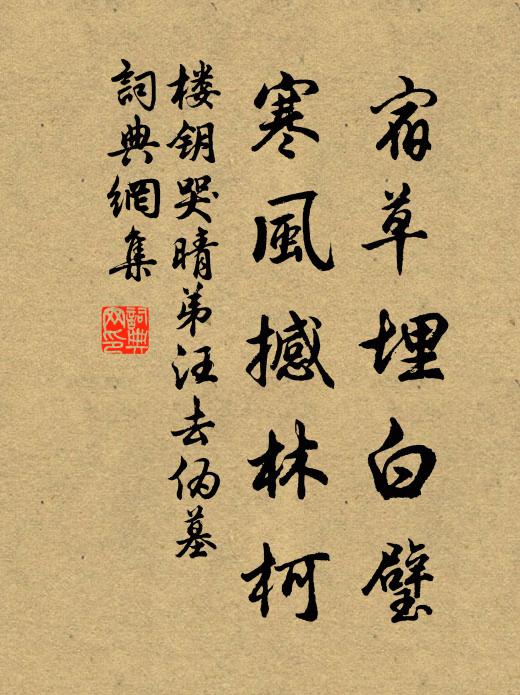 宿草埋白璧
寒風撼林柯
楼钥哭晴弟汪去伪墓
詞典網集
詞典网印